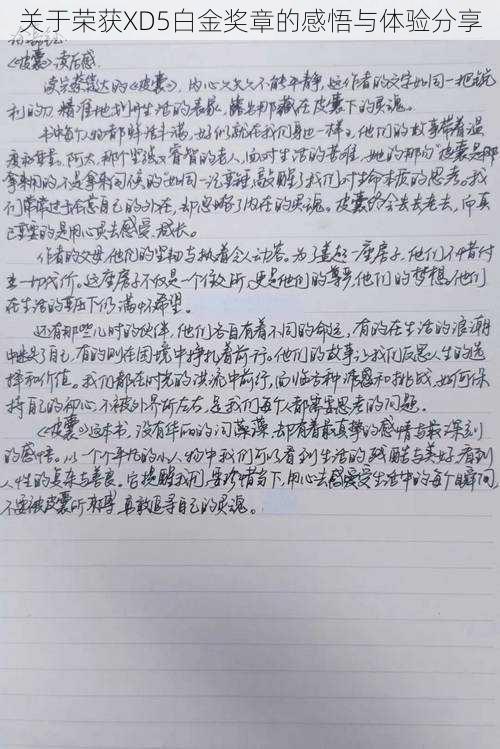 关于荣获XD5白金奖章的感悟与体验分享
《皮囊》读后感
读完蔡崇达的《皮囊》，内心久久不能平静，这作者的文字如同一把锐
利的刀 精准地划开生活的表象，露出那藏在皮囊下的灵魂。
书中每个人物都鲜活丰满，好似就在我们身边一样。他们的故事带着温
阿太，那个坚强又睿智的老人，面对生活的苦难，她的那句"皮囊是那
拿来用的，不是拿来伺候的"如同一记 敲醒了我们对生命本质的思考。我
们常常过于在意自己的外在，却忽略了内在的灵魂。皮囊终会老去，而真
正重要的是用心灵去感受、成长。
作者的父母他们的坚韧与执着令人动容。为了盖起一座房子，他们不惜付
出一切代价。这座房子不仅是一个住所，更是他们的尊严，他们的梦想，他们
在生活的重压下仍满怀希望。
还有那些儿时的伙伴，他们各自有着不同的命运，有的在生活的浪潮
中迷失了自己，有的则在困境中挣扎着前行。他们的故事让我们反思人生的选
择和价值。我们都在时光的洪流中前行，面临各种诱惑和挑战，如何保
持自己的初心，不被外界所左右，是我们每个人都需要思考的问题。
《皮囊》这本书，没有华丽的词藻，却有着最真挚的感情与最深刻
的感悟。从一个个平凡的小人物中我们可以看到生活的残酷与美好，看到
人性的复杂与善良。它提醒我们，要珍惜当下，用心去感受生活中的每个瞬间，
不要被皮囊所束缚，勇敢追寻自己的灵魂。